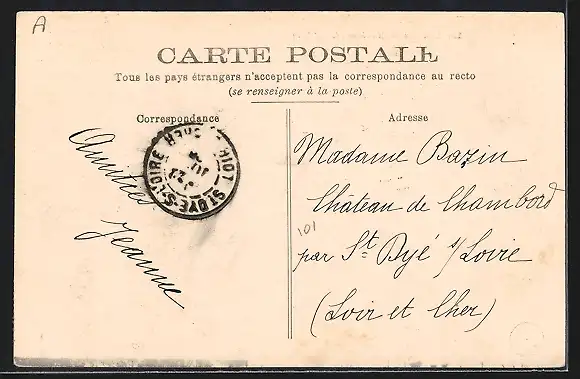 A
CARTE POSTALE
Tous les pays étrangers n'acceptent pas la correspondance au recto
(se renseigner à la poste)
Correspondance
Adresse
Amitiés
Jeanne
ST DYE-S-LOIRE
Madame Bazin
Château de Chambord
101
par St Dyé s/Loire
(Loir et Cher)